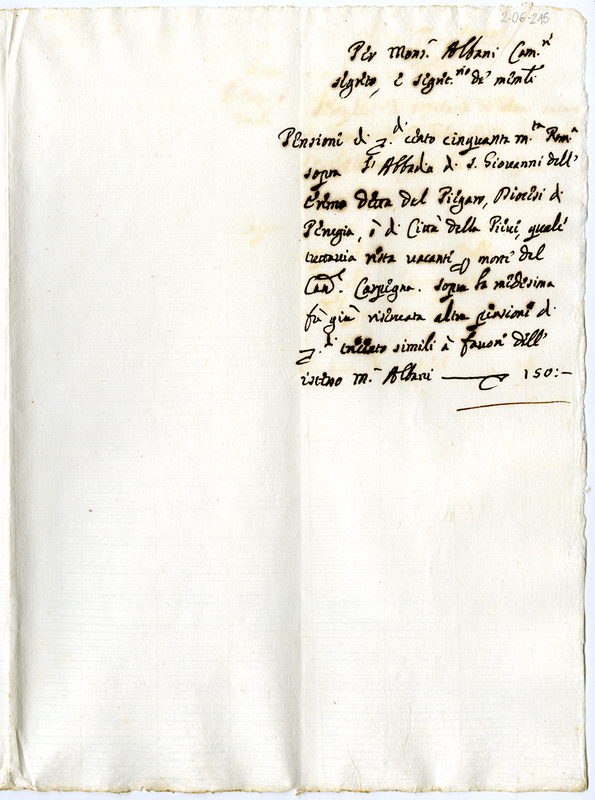 2-06-215
Per Mons.r Albani Cam.ri
segreto, e segret.rio de' mem.li
Pensioni di ▽.di cento cinquanta m.ta Rom.a
sopra l'Abbadia di S. Giovanni dell'
Eremo detta del Piegaro, Diocesi di
Perugia, ò di Città della Pieve, quale
tuttavia resta vacante p morte del
Card. Carpegna. Sopra la medesima
fù già riservata altra pensione di
▽.di trecento simili à favore dell'
istesso m.r Albani 150:-